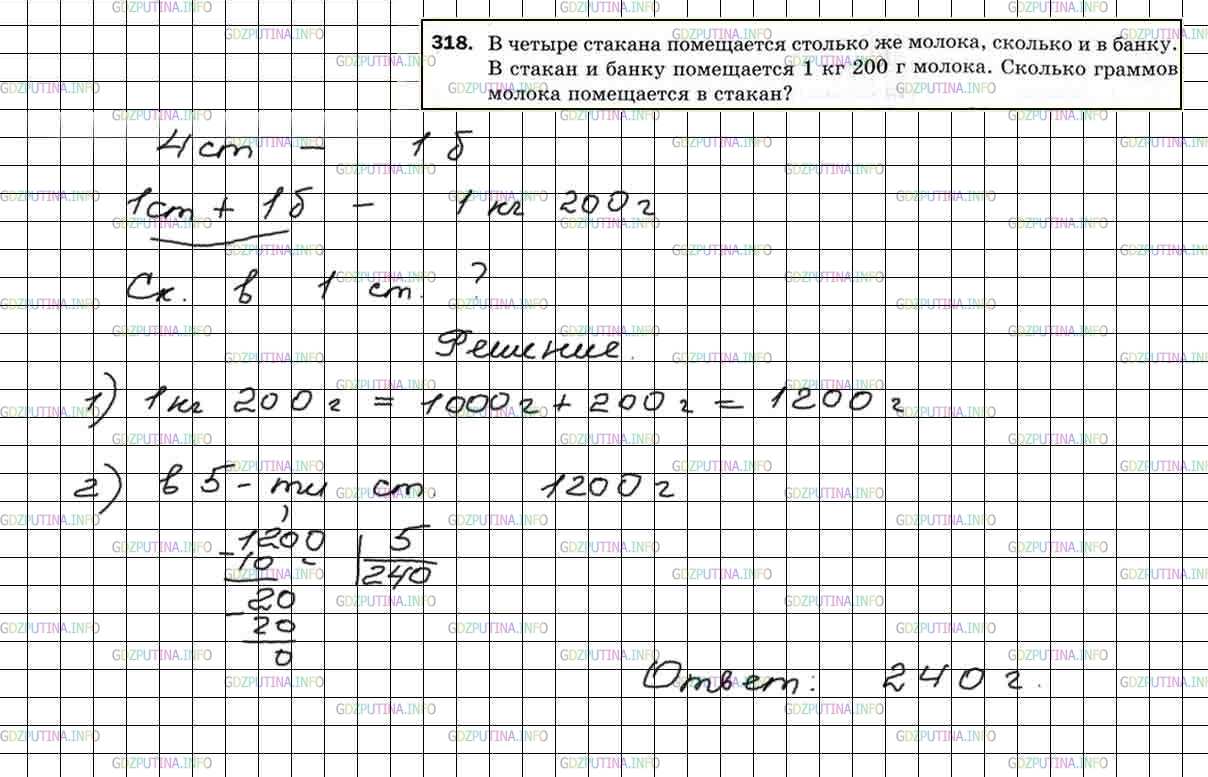 318. В четыре стакана помещается столько же молока, сколько и в банку.
В стакан и банку помещается 1 кг 200 г молока. Сколько граммов
молока помещается в стакан?
4 ст - 1 б
1ст + 1б - 1 кг 200 г
Ск. в 1 ст. ?
Решение.
1) 1 кг 200 г = 1000 г + 200 г = 1200 г
2) в 5-ти ст. 1200 г
1200 | 5
- 10 | 240
20
- 20
0
Ответ: 240 г.
GDZPUTINA.INFO